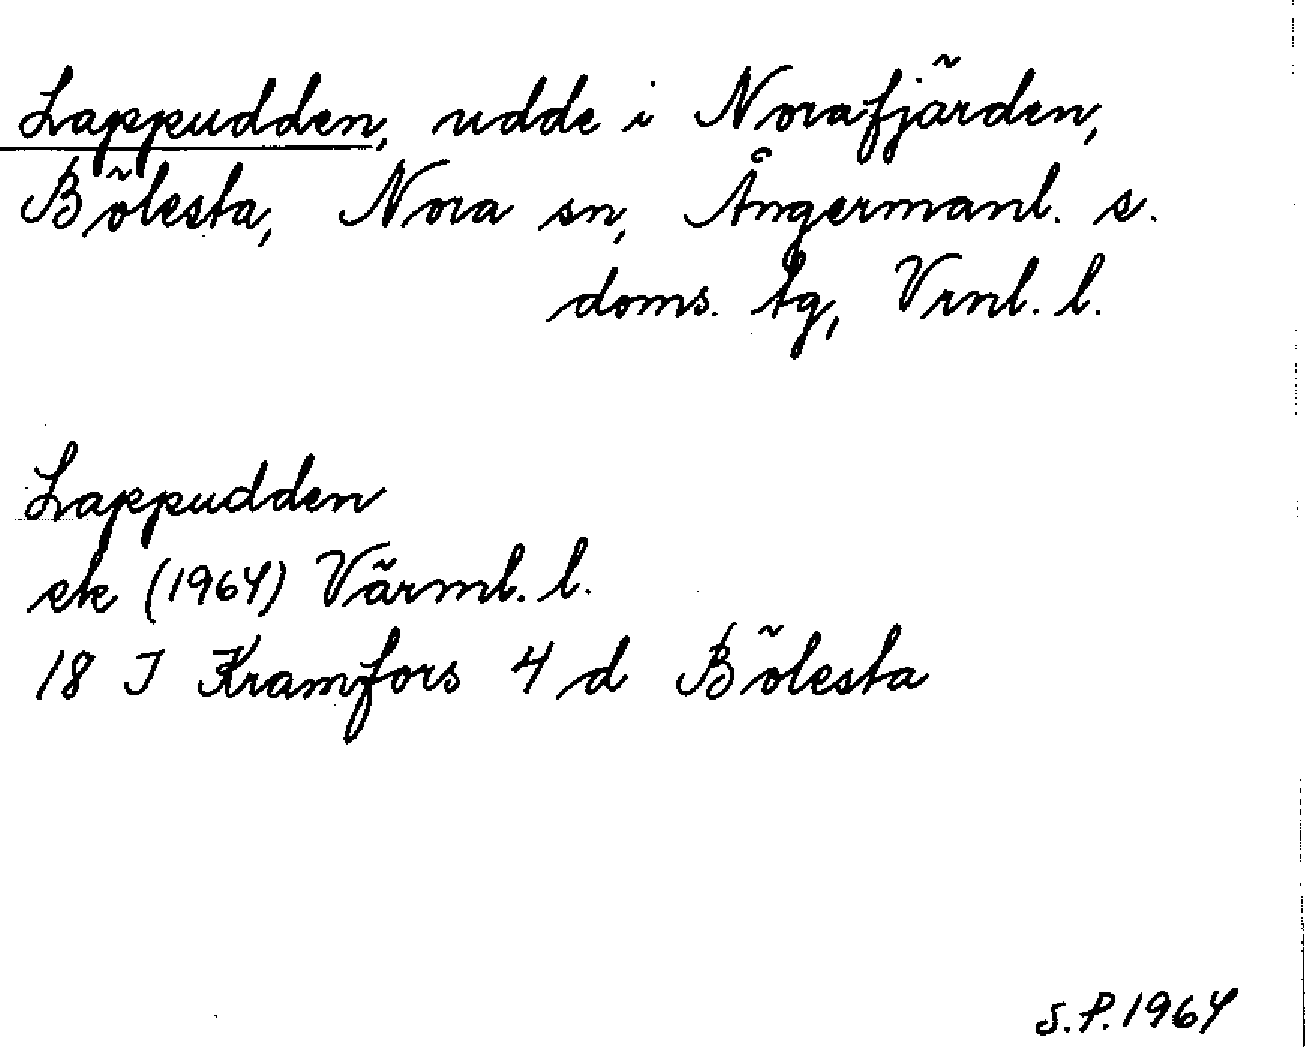 Lappudden, udde i Norafjärden,
Bölesta, Nora sn, Ångermanl. s.
doms. tg, Vrnl. l.
Lappudden
ek (1964) Värml. l.
18 I Kramfors 4 d Bölesta
S.P. 1964